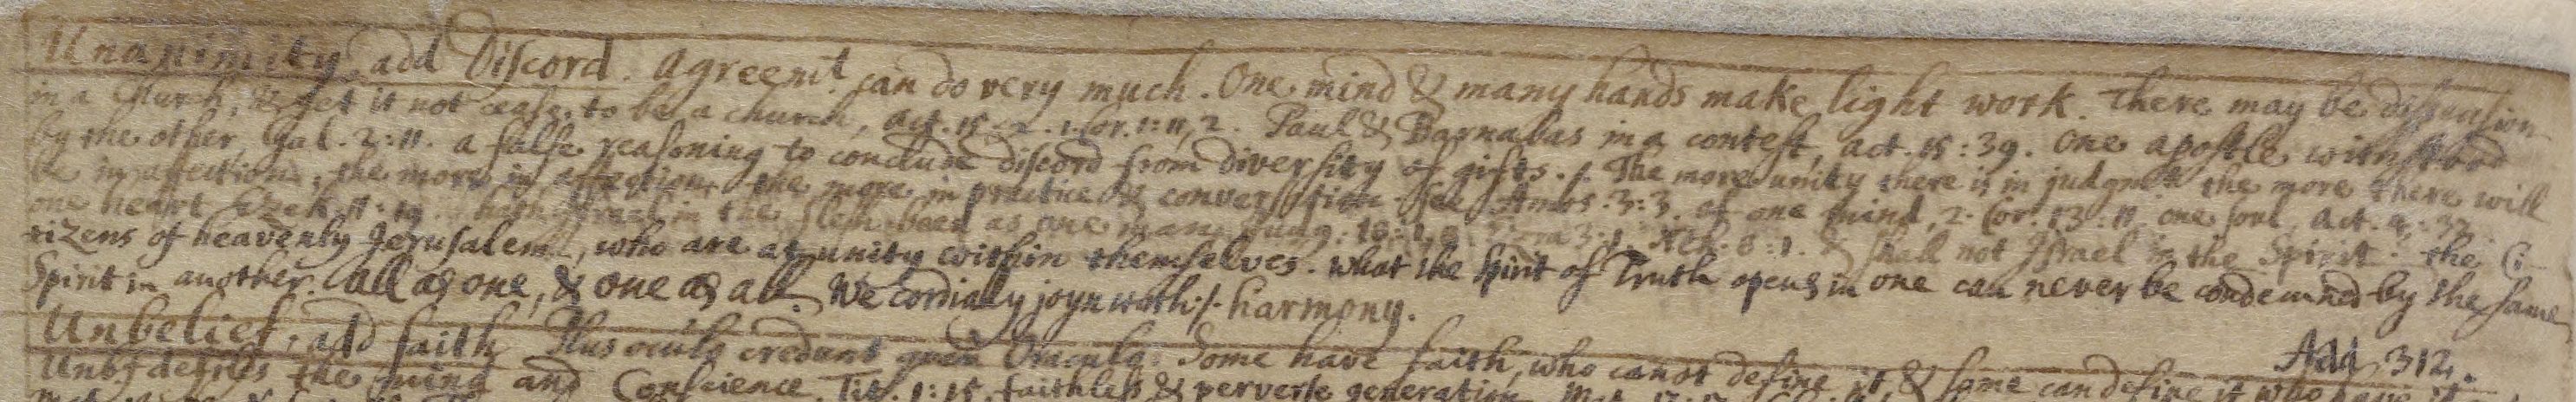 Unanimity, add Discord. Agreemt. can do very much. One mind & many hands make light work. There may be dissension
in a Church, & yet it not cease to be a church, act. 15:2. 1. Cor. 1:11,2. Paul & Barnabas in a contest, act. 15:39. One apostle withstood
by the other, Gal. 2:11. a false reasoning to conclude discord from diversity of gifts. /. The more unity there is in judgmt the more there will
be in affection, the more in affection, the more in practice & conversation. See Amos. 3:3. of one mind, 2. Cor. 13:11. one soul, act. 4:32
one heart Ezek. 11:19. hath Israel in the flesh been as one man, Judg. 3:1. Neh. 8:1. & shall not Israel in the Spirit? the Ci-
tizens of heavenly Jerusalem, who are at unity within themselves. What the Spirit of Truth opens in one can never be condemned by the same
Spirit in another. All as one, & one as all. We cordially joyn with /. harmony.
Add 312.
Unbelief, add faith Plus oculis credunt quam Oraculis. Some have faith, who canot define it, & some can define it who have it
Unbf defiles the mind and Conscience. Tit. 1:15. faithless & perverse generation